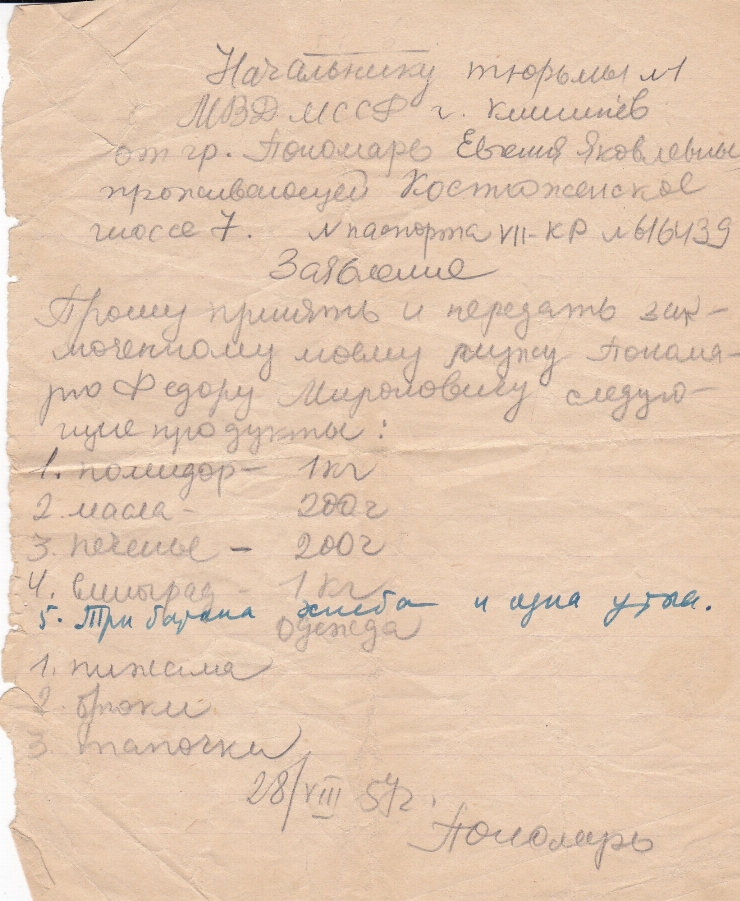 Начальнику тюрьмы №1
МВД МССР г. Кишинёв
от гр. Пономарь Евгения Яковлевны
проживающей Костюженское
шоссе 7. № паспорта VII-КР №616439
Заявление
Прошу принять и передать зак-
люченному моему мужу Понома-
рю Федору Мироновичу следую-
щие продукты:
1. помидор – 1 кг
2. масла – 200 г
3. печенье – 200 г
4. виноград – 1 кг
5. Три батона хлеба и одна утка.
Одежда
1. пижама
2. брюки
3. тапочки
28/VIII 57 г.
Пономарь